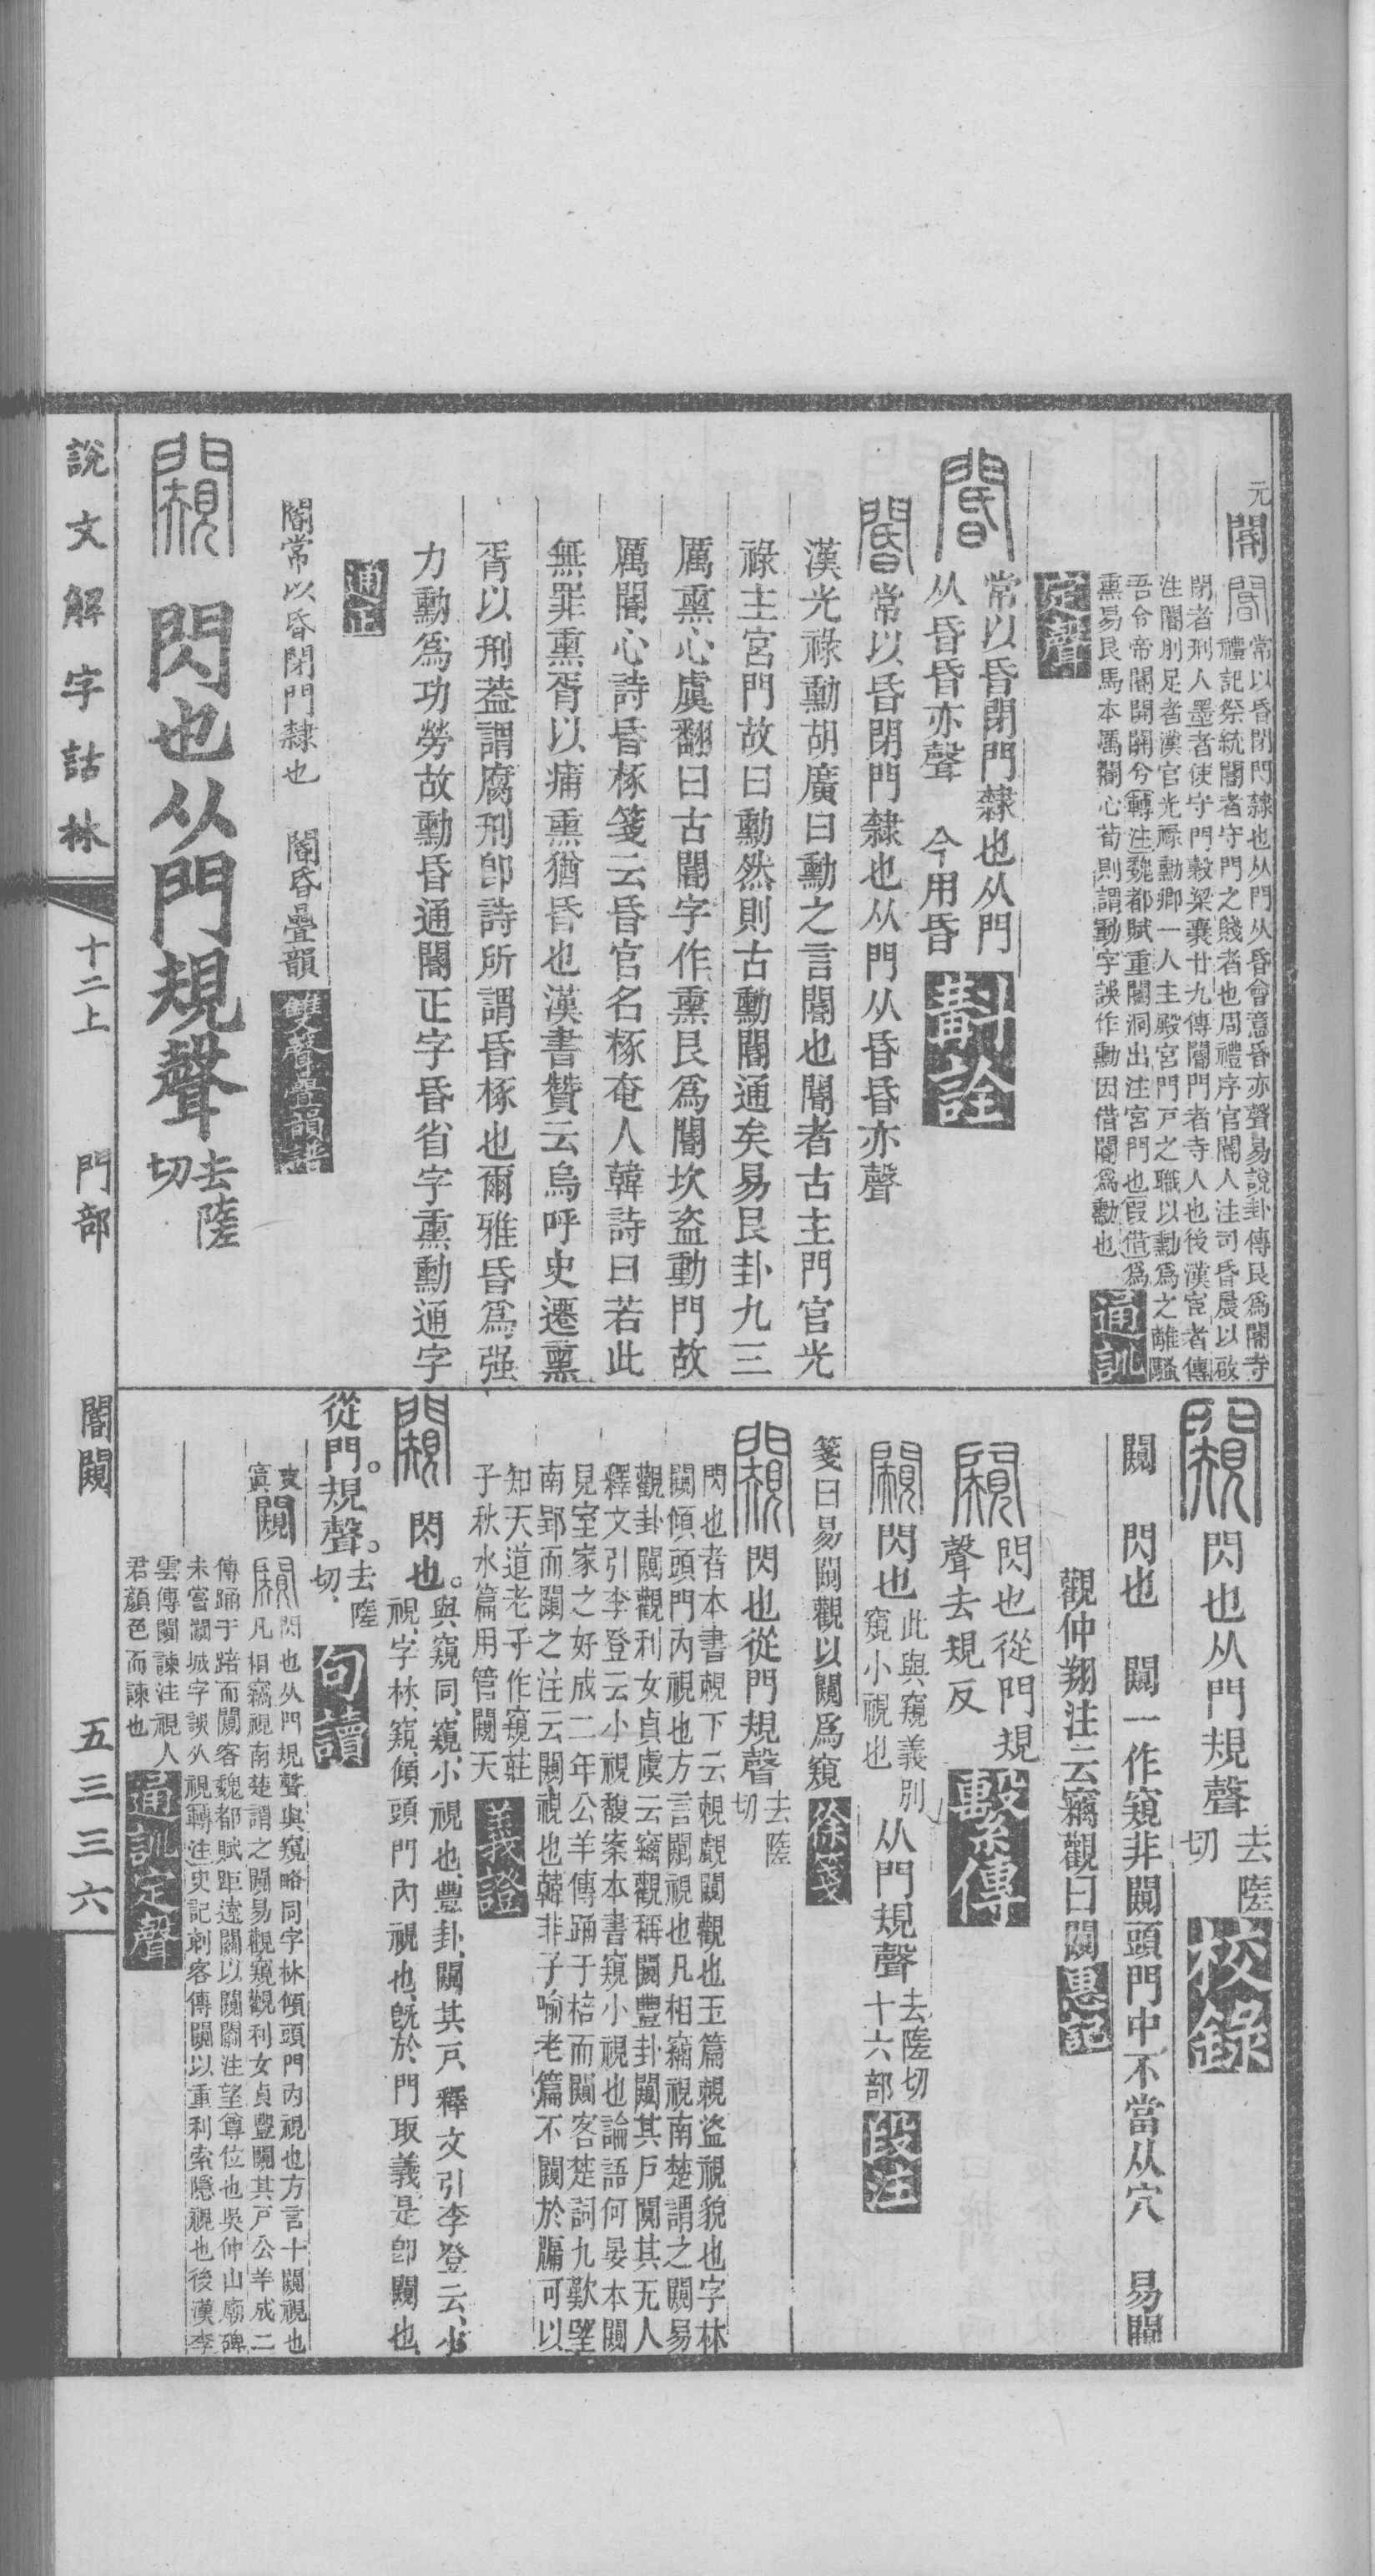 元
閽
閽常以昏閉門隸也从門从昏會意昏亦聲易說卦傳艮爲閽寺
禮記祭統閽者守門之賤者也周禮序官閽人注司昏晨以啟
閉者刑人墨者使守門穀梁襄廿九傳閽門者寺人也後漢宦者傳
注閽刖足者漢官光祿勳卿一人主殿宮門戸之職以勳爲之離騷
吾令帝閽開關兮轉注魏都賦重閽洞出注宮門也假借爲
熏易艮馬本厲閽心荀則謂動字誤作勳因借閽爲勳也
通訓
定聲
閽
常以昏閉門隸也从門
从昏昏亦聲 今用昏
斠詮
閽常以昏閉門隸也从門从昏昏亦聲
漢光祿勳胡廣曰勳之言閽也閽者古主門官光
祿主宮門故曰勳然則古勳閽通矣易艮卦九三
厲熏心虞翻曰古閽字作熏艮爲閽坎盜動門故
厲閽心詩昏椓箋云昏官名椓奄人韓詩曰若此
無罪熏胥以痡熏猶昏也漢書贊云烏呼史遷熏
胥以刑蓋謂腐刑卽詩所謂昏椓也爾雅昏爲强
力勳爲功勞故勳昏通閽正字昏省字熏勳通字
通正
閽常以昏閉門隸也 閽昏疊韻
雙聲疊韻譜
閱也从門規聲
去隓
切
闚閃也从門規聲
去隓
切
校錄
闚 閃也 闚一作窺非闚頭門中不當从穴 易闚
觀仲翔注云竊觀曰闚
惠記
闚
閃也從門規
聲去規反
繫傳
闚閃也
此與窺義別
窺小視也
从門規聲
去隓切
十六部
段注
箋曰易闚觀以闚爲窺
徐箋
闚閃也從門規聲
去隓
切
閃也者本書覢下云覢覰闚觀也玉篇覢盜視貌也字林
闚傾頭門內視也方言闚視也凡相竊視南楚謂之闚易
觀卦闚觀利女貞虞云竊觀稱闚豐卦闚其戶闃其无人
釋文引李登云小視馥案本書窺小視也論語何晏本闚
見室家之好成二年公羊傳踊于棓而闚客楚詞九歎望
南郢而闚之注云闚視也韓非子喻老篇不闚於牖可以
知天道老子作窺莊
子秋水篇用管闚天
義證
闚閃也。
與窺同、窺小視也、豐卦、闚其戸、釋文引李登云、小
視、字林、窺、傾頭門內視也、旣於門取義是卽闚也、
從門。規聲。
去隓
切、
句讀
闚
闚閃也从門規聲與窺略同字林傾頭門內視也方言十闚視也
凡相竊視南楚謂之闚易觀窺觀利女貞豐闚其戸公羊成二
傳踊于踣而闚客魏都賦距遠關以闚𨵦注望尊位也吳仲山廟碑
未嘗闚城字誤从視轉注史記刺客傳闚以重利索隱視也後漢李
雲傳闚諫注視人
君顔色而諫也
通訓定聲
說文解字詁林 十二上 門部 閽闚 五三三六